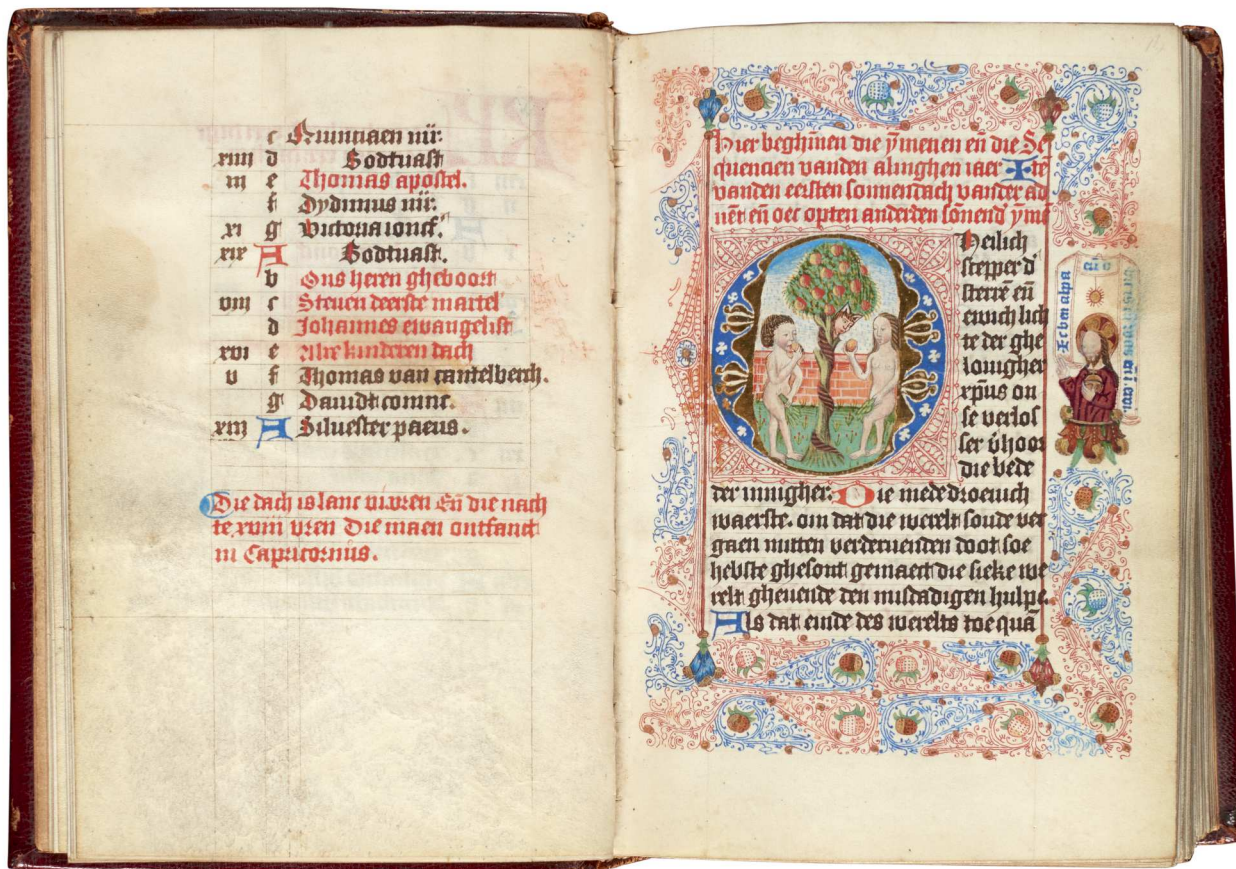 c Nunciaen mr̄.
xiiij d Godtuast
iij e Thomas apostel.
f Dydimus mr̄.
xi g Victoria ioncf.
xix A Godtuast.
b Ons heren gheboort
viij c Steuen deerste martel
d Johannes ewangelist
xvi e Alre kinderen dach
v f Thomas van cantelberch.
g Dauidt coninc.
xiij A Siluester paeus.
Die dach is lanc vi vren En̄ die nach
te xviij vren Die maen ontfanct
in Capricornus.
Hier beghīnen die ymenen en̄ die Se
quencien vanden alinghen iaer Itē
vanden eersten sonnendach vander ad
uēt en̄ oec opten anderden sōnend ymē
Heilich
stepper d
sterrē en̄
ewich lich
te der ghe
loui gher
xp̄us on
se verlos
ser v̄hoor
die bede
der innigher. Die mede droeuich
waerste. om dat die werelt soude ver
gaen mitten verderuenden doot soe
hebste ghesont gemaect die sieke we
relt gheuende den misdadigen hulpe.
Als dat einde des werelts toe quā
Ic ben alpa